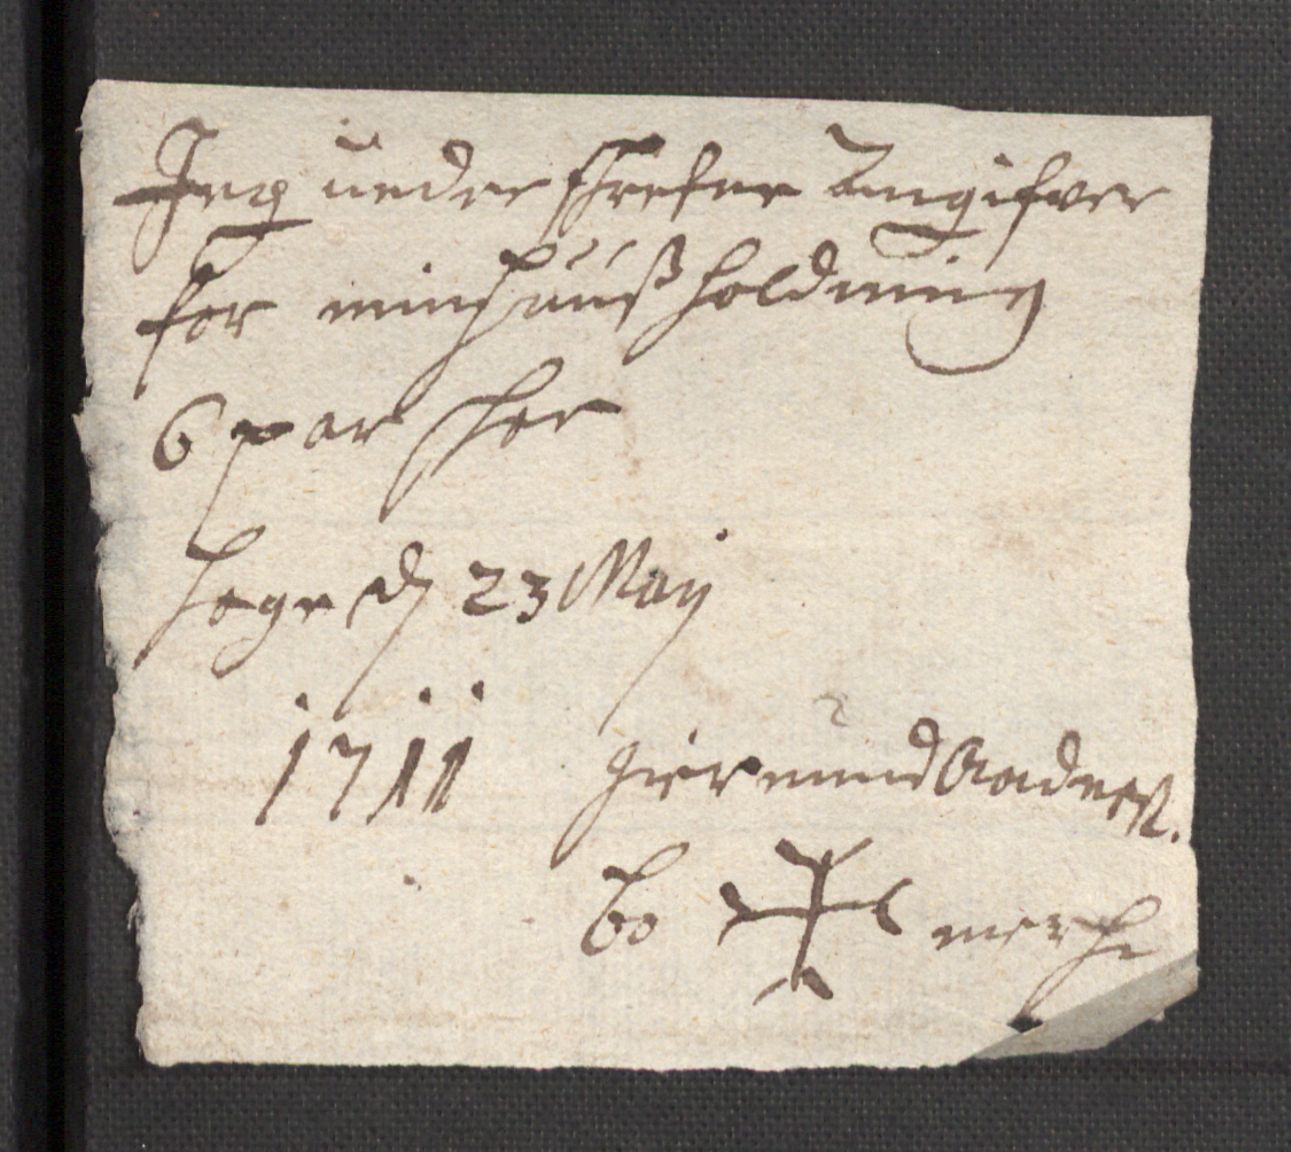 Jeg under skrefne Angifver
for min Huuß holdning
6 par skoe
Hoge d 23 Maÿ
1711 Giermund Aadness.
bo merke